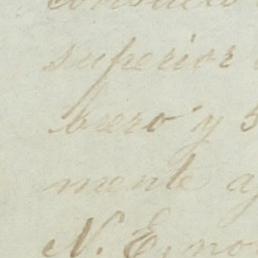 superior
brero y 5
mente a
N. E. no